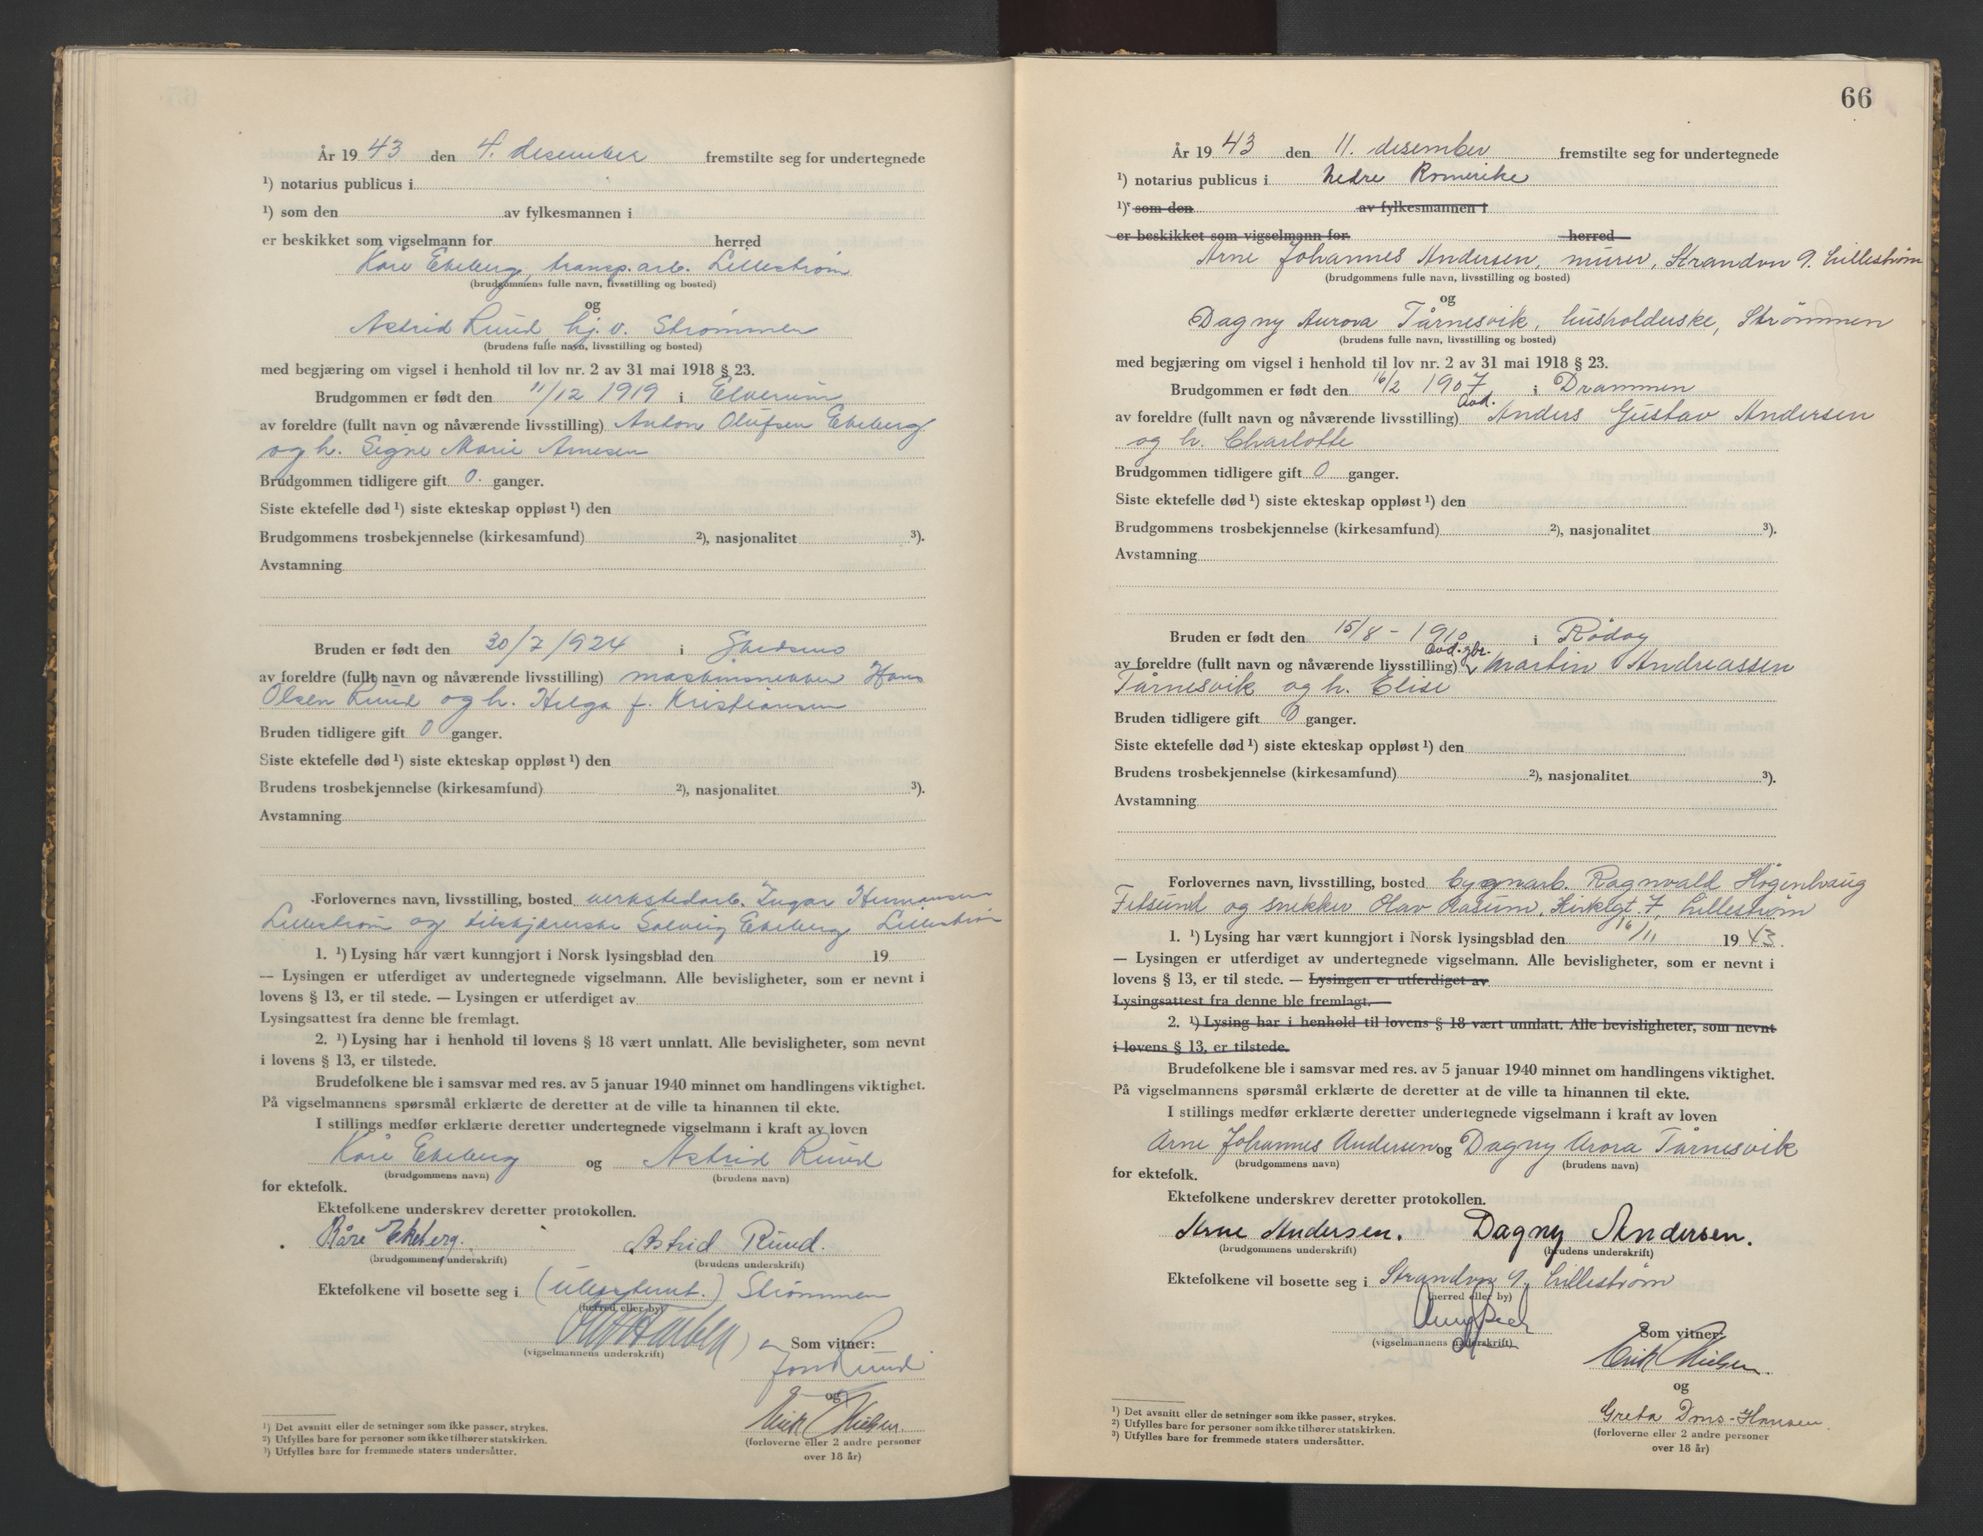 År 1943 den 4. desember fremstilte seg for undertegnede
¹) notarius publicus i
¹) som den av fylkesmannen i
er beskikket som vigselmann for herred
Kåre Ekeberg, transp.arb. Lillestrøm
(brudgommens fulle navn, livsstilling og bosted)
og
Astrid Ruud, hj.v. Strømmen
(brudens fulle navn, livsstilling og bosted)
med begjæring om vigsel i henhold til lov nr. 2 av 31 mai 1918 § 23.
Brudgommen er født den 11/12 1919 i Elverum
av foreldre (fullt navn og nåværende livsstilling) Anton Olufsen Ekeberg
og h. Signe Marie Arnesen
Brudgommen tidligere gift 0. ganger.
Siste ektefelle død ¹) siste ekteskap oppløst ¹) den
Brudgommens trosbekjennelse (kirkesamfund) ²), nasjonalitet ³).
Avstamning
Bruden er født den 30/7 1924 i Skedsmo
av foreldre (fullt navn og nåværende livsstilling) maskinsnekker Hans
Olsen Ruud og h. Helga f. Kristiansen
Bruden tidligere gift 0 ganger.
Siste ektefelle død ¹) siste ekteskap oppløst ¹) den
Brudens trosbekjennelse (kirkesamfund) ²), nasjonalitet ³).
Avstamning
Forlovernes navn, livsstilling, bosted verkstedarb. Ingar Hermansen
Lillestrøm og tilskjærerske Solveig Ekeberg Lillestrøm
1. ¹) Lysing har vært kunngjort i Norsk lysingsblad den 19
— Lysingen er utferdiget av undertegnede vigselmann. Alle bevisligheter, som er nevnt i
lovens § 13, er til stede. — Lysingen er utferdiget av
Lysingsattest fra denne ble fremlagt.
2. ¹) Lysing har i henhold til lovens § 18 vært unnlatt. Alle bevisligheter, som nevnt
i lovens § 13, er tilstede.
Brudefolkene ble i samsvar med res. av 5 januar 1940 minnet om handlingens viktighet.
På vigselmannens spørsmål erklærte de deretter at de ville ta hinannen til ekte.
I stillings medfør erklærte deretter undertegnede vigselmann i kraft av loven
Kåre Ekeberg og Astrid Ruud
(brudgommens navn) (brudens navn)
for ektefolk.
Ektefolkene underskrev deretter protokollen.
Kåre Ekeberg. Astrid Ruud.
(brudgommens underskrift) (brudens underskrift)
Ektefolkene vil bosette seg i Strømmen
(herred eller by)
Som vitner:
(vigselmannens underskrift)
Ruud
og
Erik Nielsen.
(forloverne eller 2 andre personer
over 18 år)
¹) Det avsnitt eller de setninger som ikke passer, strykes.
²) Utfylles bare for personer som ikke tilhører statskirken.
³) Utfylles bare for fremmede staters undersåtter.
66
År 1943 den 11. desember fremstilte seg for undertegnede
¹) notarius publicus i Nedre Romerike
¹) som den av fylkesmannen i
er beskikket som vigselmann for herred
Arne Johannes Andersen, murer, Strandvn 9. Lillestrøm
(brudgommens fulle navn, livsstilling og bosted)
og
Dagny Aurora Tårnesvik, husholderske, Strømmen
(brudens fulle navn, livsstilling og bosted)
med begjæring om vigsel i henhold til lov nr. 2 av 31 mai 1918 § 23.
Brudgommen er født den 16/2 1907 i Drammen
av foreldre (fullt navn og nåværende livsstilling) avd. Anders Gustav Andersen
og h. Charlotte
Brudgommen tidligere gift 0 ganger.
Siste ektefelle død ¹) siste ekteskap oppløst ¹) den
Brudgommens trosbekjennelse (kirkesamfund) ²), nasjonalitet ³).
Avstamning
Bruden er født den 15/8 - 1910 i Rødøy
av foreldre (fullt navn og nåværende livsstilling) avd. gbr. Martin Andreassen
Tårnesvik og h. Elise
Bruden tidligere gift 0 ganger.
Siste ektefelle død ¹) siste ekteskap oppløst ¹) den
Brudens trosbekjennelse (kirkesamfund) ²), nasjonalitet ³).
Avstamning
Forlovernes navn, livsstilling, bosted bygnarb. Ragnvald Høgenhaug
Fetsund og snekker Olav Aasum, Kirkegt. 7, Lillestrøm
1. ¹) Lysing har vært kunngjort i Norsk lysingsblad den 16/11 1943.
— Lysingen er utferdiget av undertegnede vigselmann. Alle bevisligheter, som er nevnt i
lovens § 13, er til stede. — Lysingen er utferdiget av
Lysingsattest fra denne ble fremlagt. —
2. ¹) Lysing har i henhold til lovens § 18 vært unnlatt. Alle bevisligheter, som nevnt
i lovens § 13, er tilstede.
Brudefolkene ble i samsvar med res. av 5 januar 1940 minnet om handlingens viktighet.
På vigselmannens spørsmål erklærte de deretter at de ville ta hinannen til ekte.
I stillings medfør erklærte deretter undertegnede vigselmann i kraft av loven
Arne Johannes Andersen og Dagny Arora Tårnesvik
(brudgommens navn) (brudens navn)
for ektefolk.
Ektefolkene underskrev deretter protokollen.
Arne Andersen. Dagny Andersen.
(brudgommens underskrift) (brudens underskrift)
Ektefolkene vil bosette seg i Strandvn 9, Lillestrøm
(herred eller by)
Som vitner:
(vigselmannens underskrift)
Erik Nielsen.
og
Greta Dons-Hansen
(forloverne eller 2 andre personer
over 18 år)
¹) Det avsnitt eller de setninger som ikke passer, strykes.
²) Utfylles bare for personer som ikke tilhører statskirken.
³) Utfylles bare for fremmede staters undersåtter.